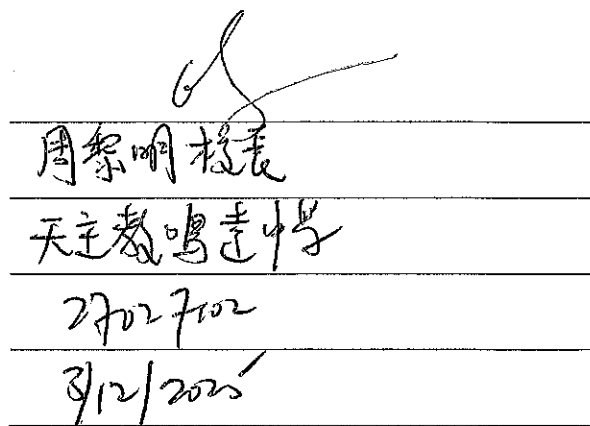 周黎明校長
天主教鳴遠中學
27027102
3/12/2025